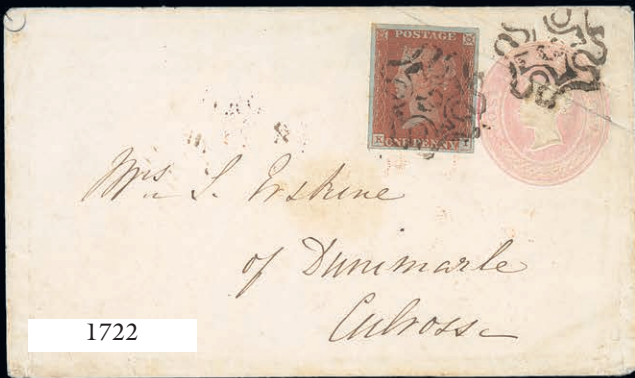 POSTAGE
ONE PENNY
Mrs. S. Erskine
of Dunimarle
Culross
1722